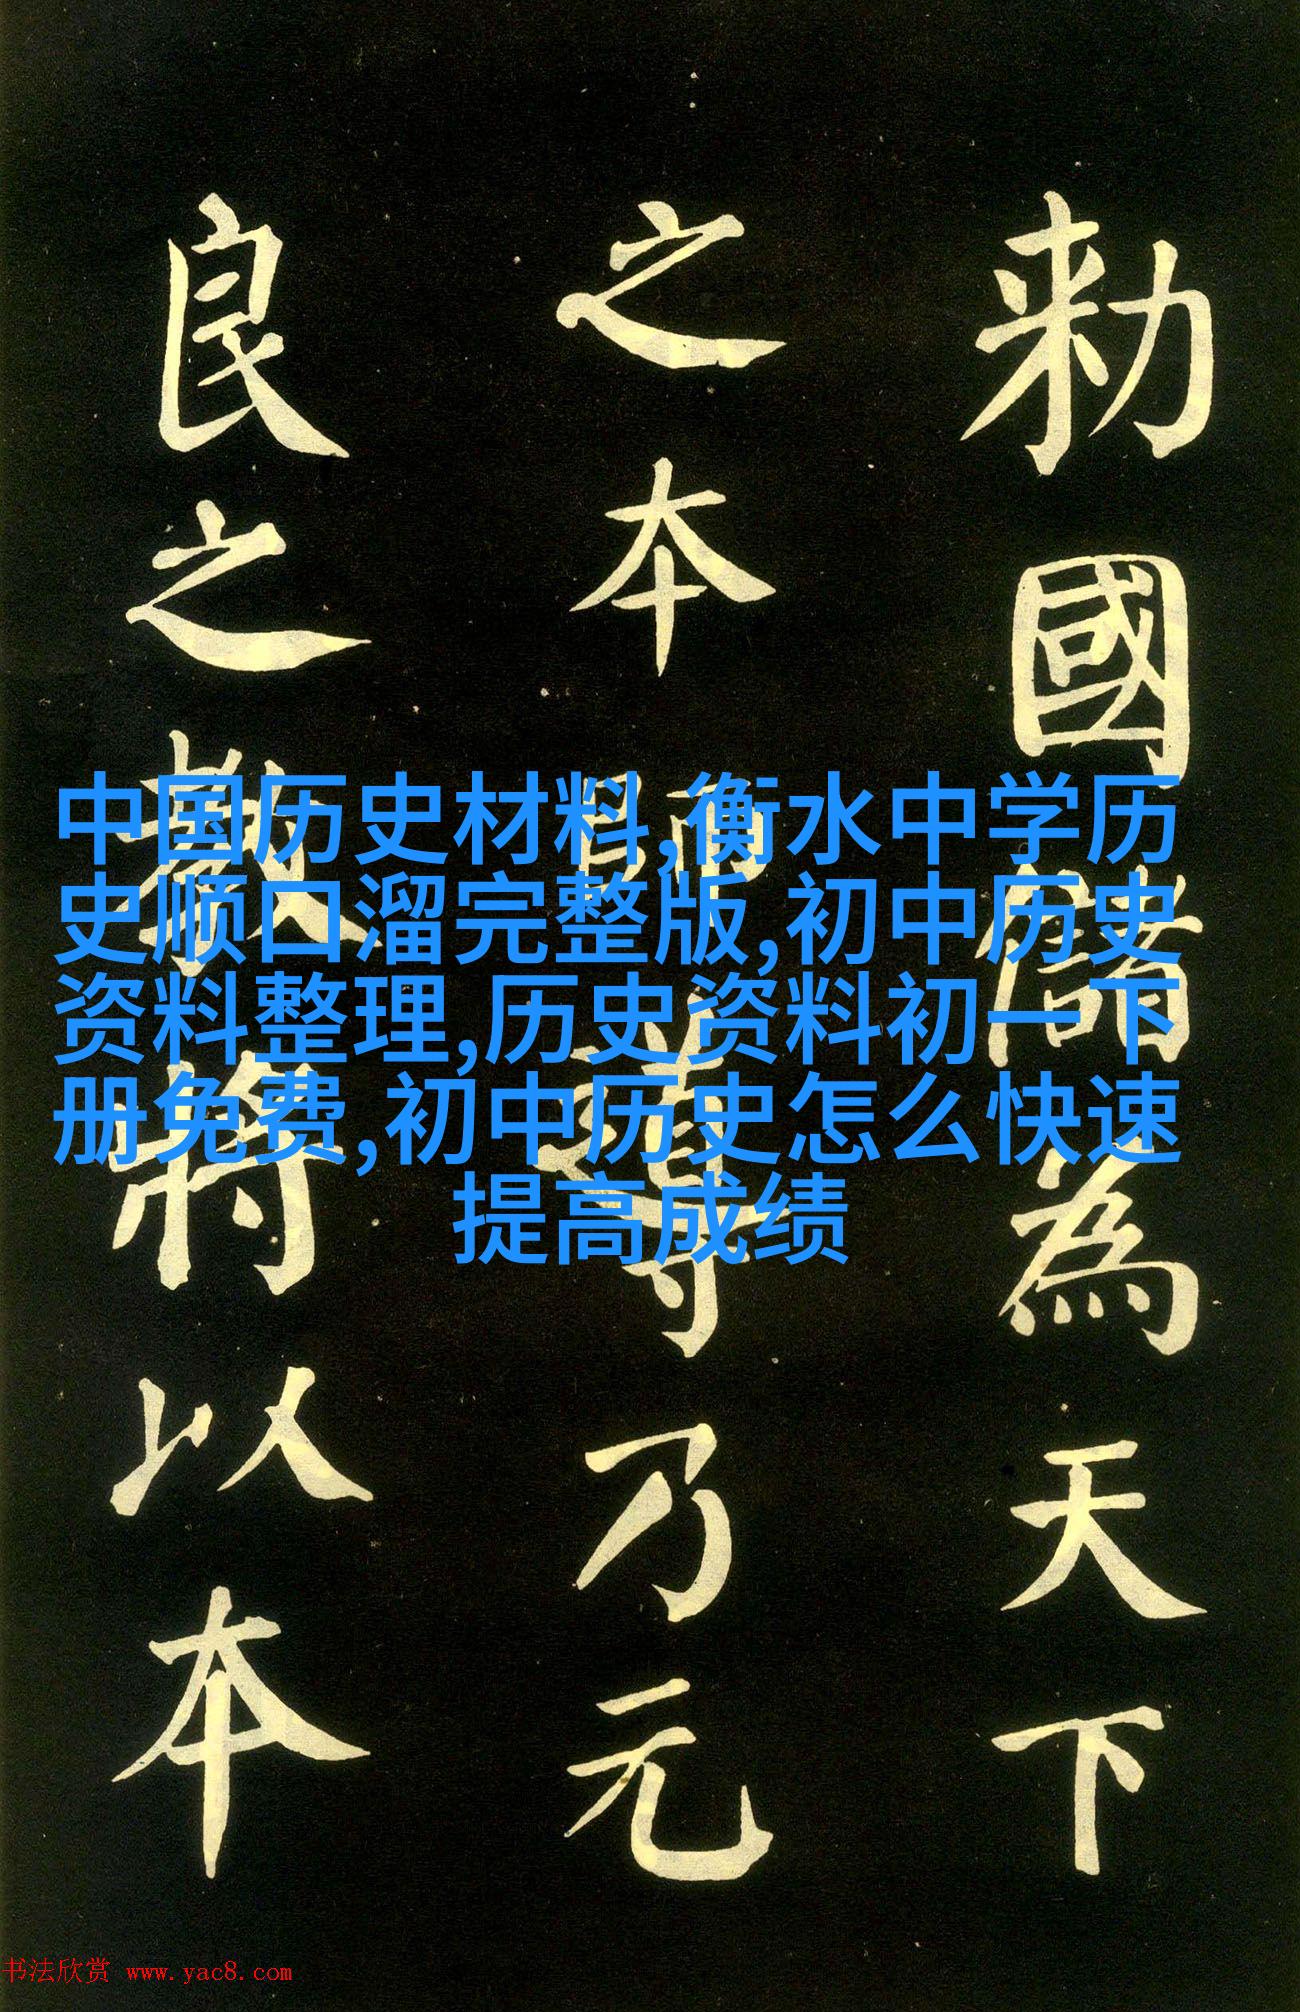 勑國儲為天下
之本師導乃元
良之教將以本
中国历史材料,衡水中学历
史顺口溜完整版,初中历史
资料整理,历史资料初一下
册免费,初中历史怎么快速
提高成绩
书法欣赏 www.yac8.com